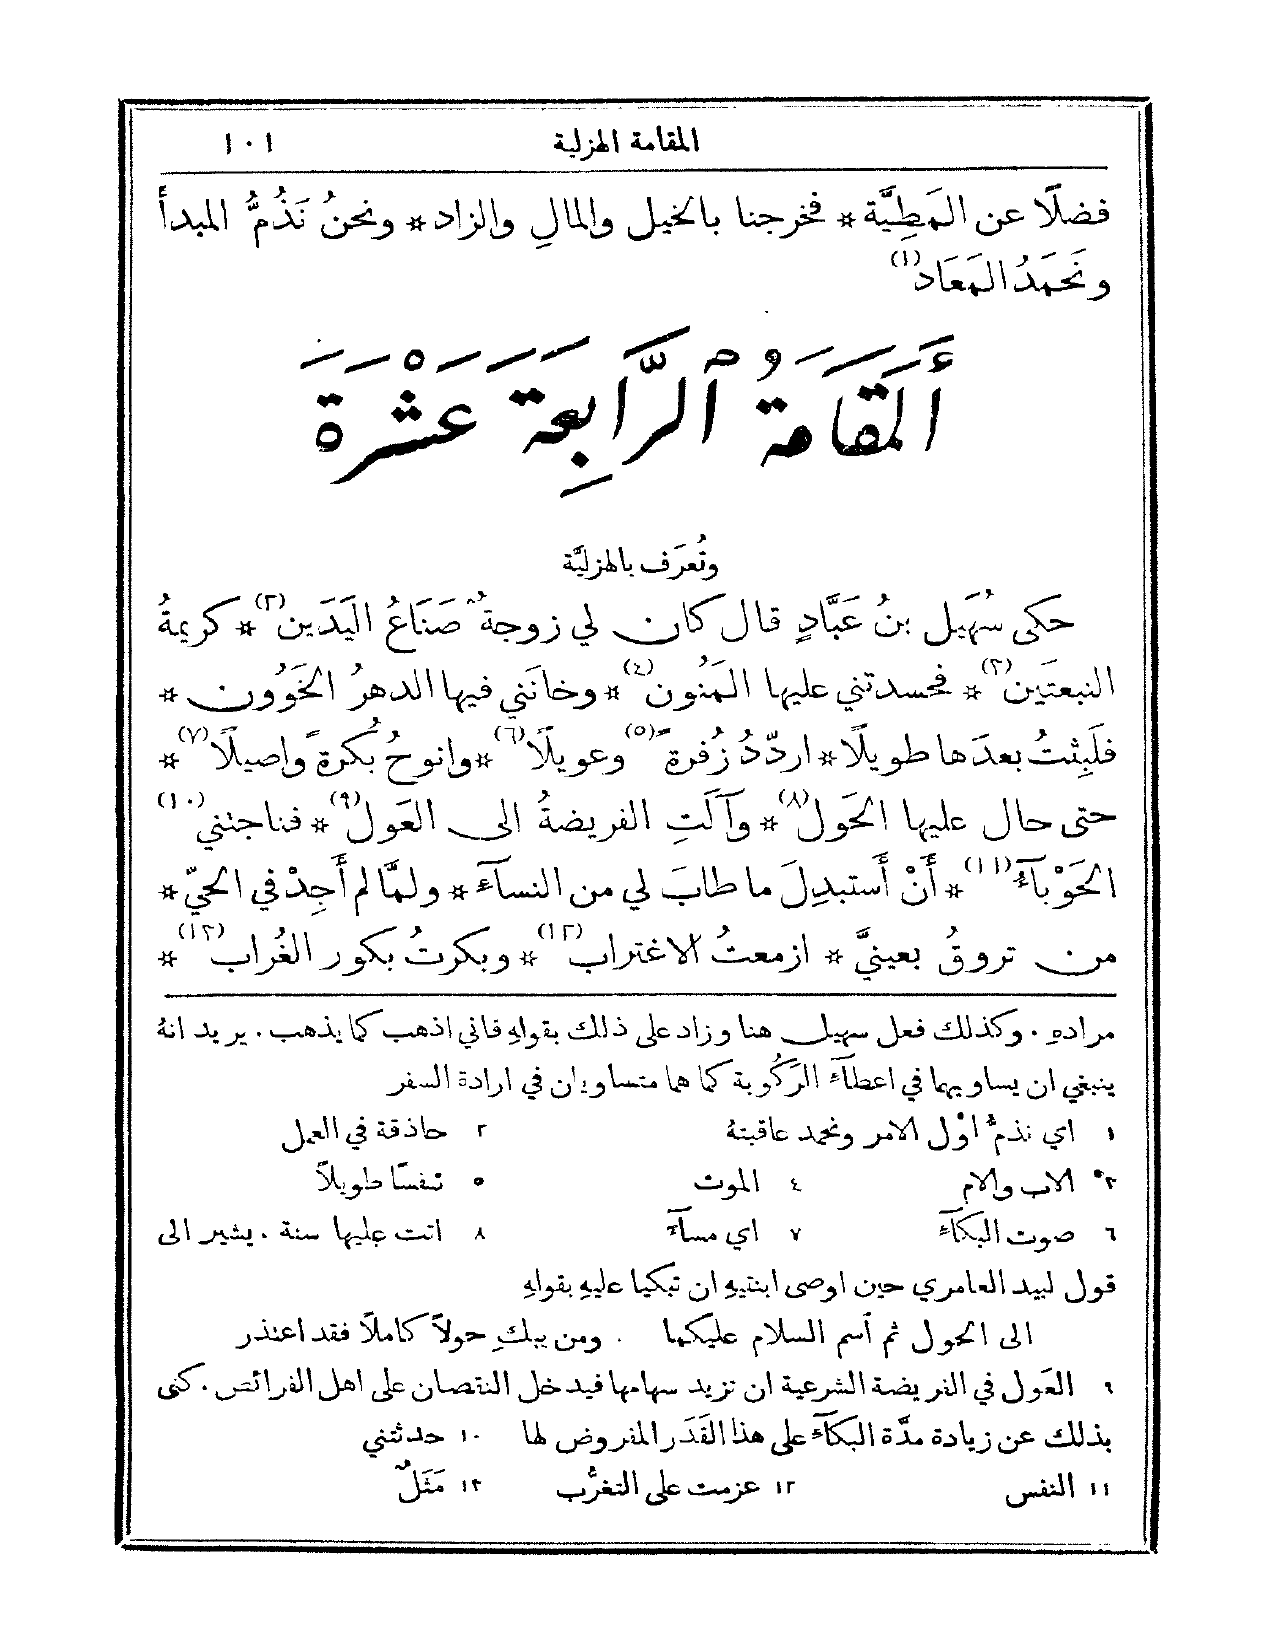 المقامة الهزلية ١٠١
فضلًا عن المَطِيَّة * فخرجنا بالخيل والمالِ والزاد * ونحنُ نَذُمُّ المبدأَ
ونَحمَدُ المَعَاد(١)
أَلمَقَامَةُ ٱلرَّابِعَةَ عَشْرَةَ
وتُعرَف بالهزليَّة
حكى سُهَيل بنُ عَبَّادٍ قال كان لي زوجةٌ صَنَاعُ اليَدَين(٢) * كريمةُ
النبعتَين(٣) * فحسدتني عليها المَنُون(٤) * وخانَتني فيها الدهرُ الخَوُون *
فلَبِثتُ بعدَها طويلًا * اردّدُ زُفرةً(٥) وعويلًا(٦) * وانوحُ بُكرةً واصيلًا(٧) *
حتى حال عليها الحَول(٨) * وآلَتِ الفريضةُ الى العَول(٩) * فناجتني(١٠)
الحَوْبآءُ(١١) * أَنْ أَستبدِلَ ما طابَ لي من النسآء * ولمَّا لم أَجِدْ في الحيّ *
من تروقُ بعينيَّ * ازمعتُ الاغتراب(١٢) * وبكرتُ بكور الغُراب(١٣) *
مرادهِ . وكذلك فعل سهيل هنا وزاد على ذلك بقولهِ فاني اذهب كما يذهب . يريد انهُ
ينبغي ان يساويهما في اعطآء الرَكُوبة كما هما متساويان في ارادة السفر
١ اي نذمُّ اوَّل الامر ونحمد عاقبتهُ ٢ حاذقة في العمل
٣ الاب والام ٤ الموت ٥ تنفسًا طويلاً
٦ صوت البكآء ٧ اي مسآءً ٨ اتت عليها سنة . يشير الى
قول لبيد العامري حين اوصى ابنتيهِ ان تبكيا عليهِ بقولهِ
الى الحول ثم أسم السلام عليكما . ومن يبكِ حولاً كاملاً فقد اعتذر
٩ العَول في الفريضة الشرعية ان تزيد سهامها فيدخل النقصان على اهل الفرائص . كنى
بذلك عن زيادة مدَّة البكآء على هذا القَدَر المفروض لها ١٠ حدثتني
١١ النفس ١٢ عزمت على التغرُّب ١٣ مَثَلٌ